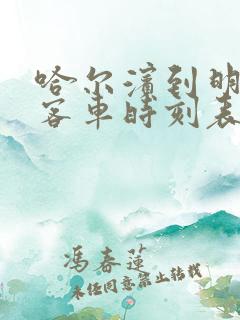 哈尔滨到明
客车时刻表
冯春莲
未经同意禁止转载